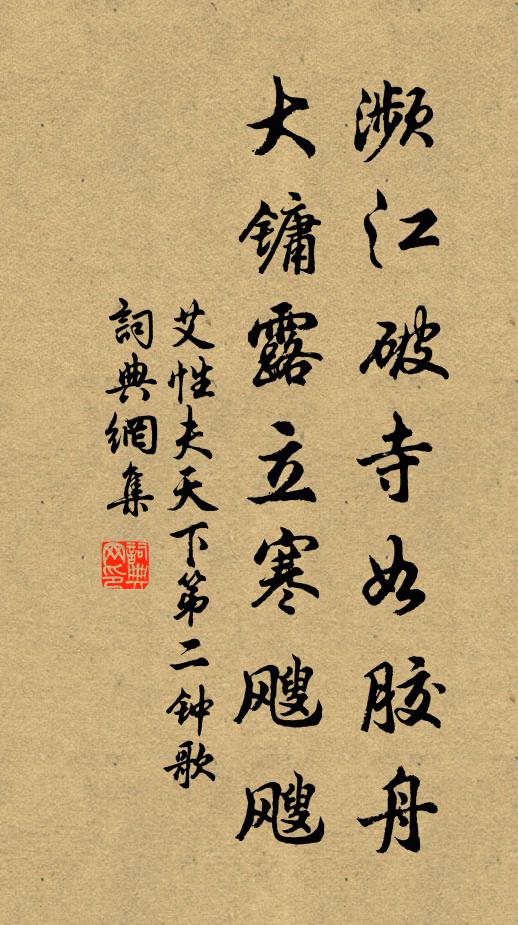 濒江破寺如胶舟
大镛露立寒飕飕
艾性夫天下第二钟歌
詞典網集
詞典网印